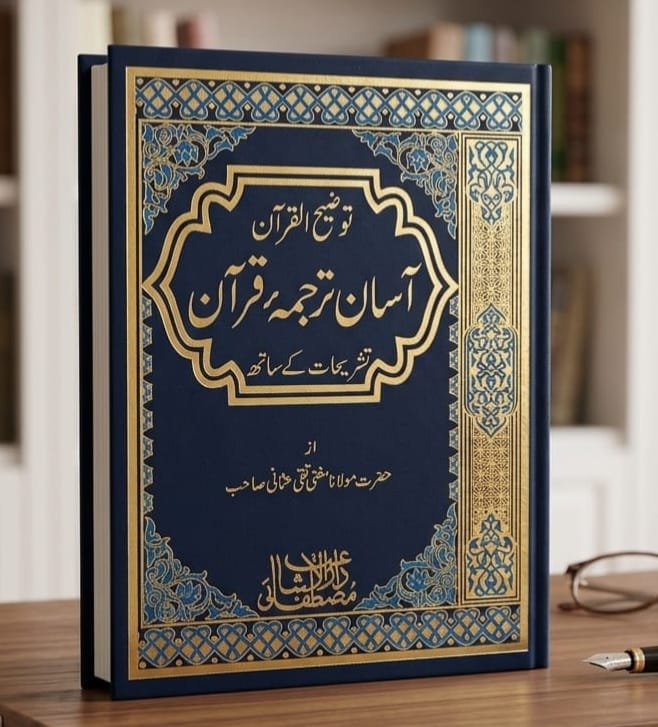 توضیح القرآن
آسان ترجمۂ قرآن
تشریحات کے ساتھ
از
حضرت مولانا مفتی تقی عثمانی صاحب
دار الاشاعت
مصطفائی